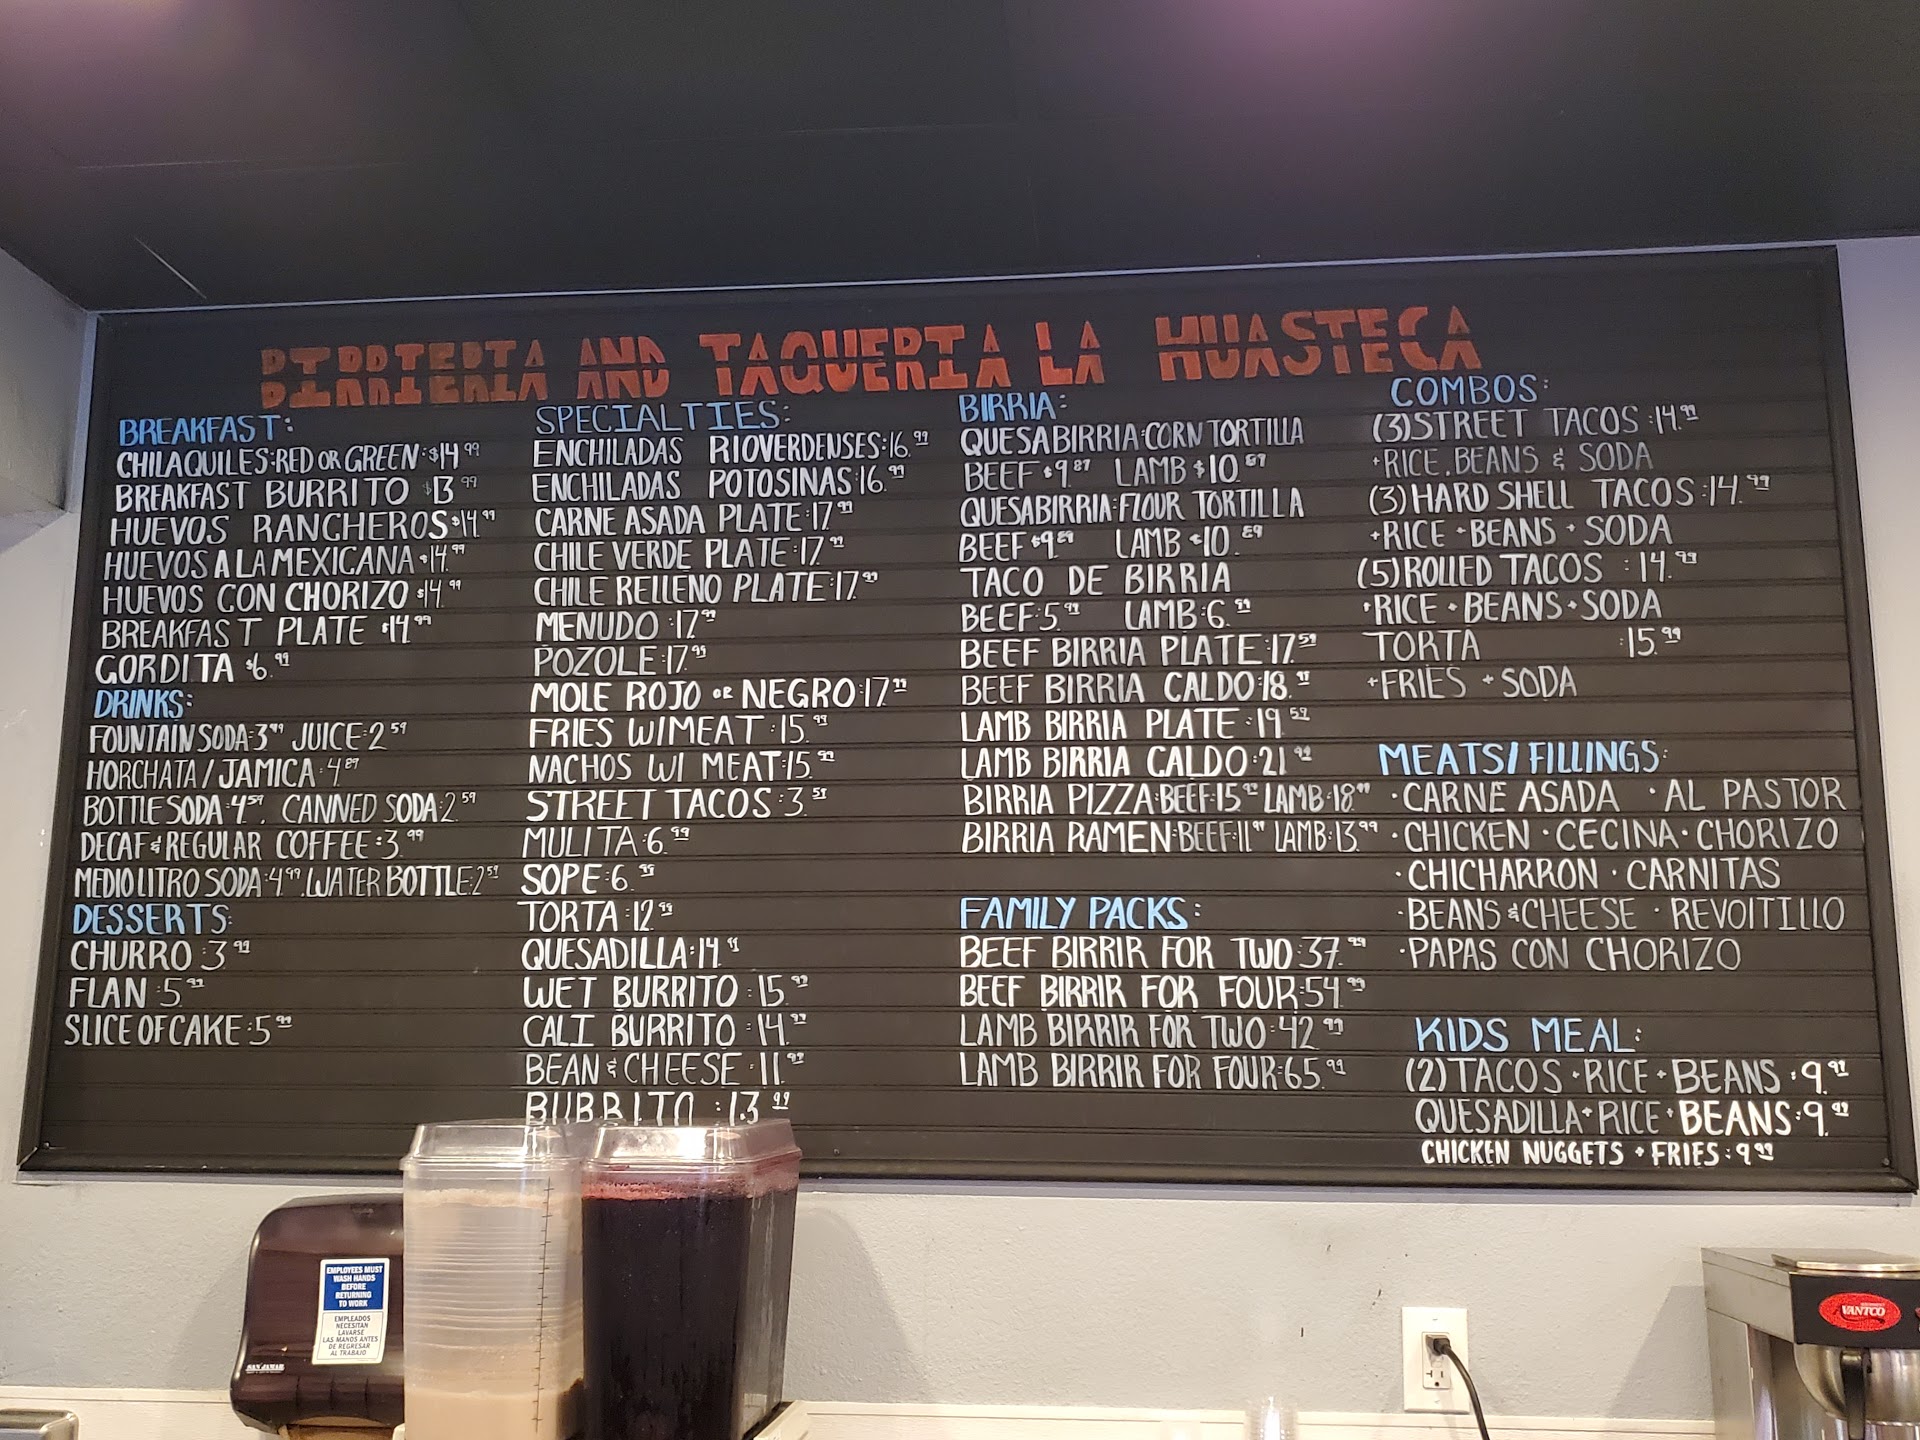 BIRRIERIA AND TAQUERIA LA HUASTECA
BREAKFAST:
CHILAQUILES:RED OR GREEN:$14.99
BREAKFAST BURRITO $13.99
HUEVOS RANCHEROS $14.99
HUEVOS A LA MEXICANA $14.99
HUEVOS CON CHORIZO $14.99
BREAKFAST PLATE $14.99
GORDITA $6.99
DRINKS:
FOUNTAIN SODA:3.99 JUICE:2.59
HORCHATA/JAMICA:4.89
BOTTLE SODA:4.59, CANNED SODA:2.59
DECAF & REGULAR COFFEE:3.99
MEDIO LITRO SODA:4.99.WATER BOTTLE:2.59
DESSERTS:
CHURRO:3.99
FLAN:5.99
SLICE OF CAKE:5.99
SPECIALTIES:
ENCHILADAS RIOVERDENSES:16.99
ENCHILADAS POTOSINAS:16.99
CARNE ASADA PLATE:17.99
CHILE VERDE PLATE:17.99
CHILE RELLENO PLATE:17.99
MENUDO:17.99
POZOLE:17.99
MOLE ROJO OR NEGRO:17.99
FRIES W/MEAT:15.99
NACHOS W/ MEAT:15.99
STREET TACOS:3.59
MULITA:6.99
SOPE:6.99
TORTA:12.99
QUESADILLA:14.99
WET BURRITO:15.99
CALI BURRITO:14.99
BEAN & CHEESE:11.99
BURRITO:13.99
BIRRIA:
QUESABIRRIA:CORN TORTILLA
BEEF $9.89 LAMB $10.89
QUESABIRRIA:FLOUR TORTILLA
BEEF $9.89 LAMB $10.89
TACO DE BIRRIA
BEEF:5.99 LAMB:6.99
BEEF BIRRIA PLATE:17.59
BEEF BIRRIA CALDO:18.99
LAMB BIRRIA PLATE:19.59
LAMB BIRRIA CALDO:21.99
BIRRIA PIZZA:BEEF:15.99 LAMB:18.99
BIRRIA RAMEN:BEEF:11.99 LAMB:13.99
FAMILY PACKS:
BEEF BIRRIR FOR TWO:37.99
BEEF BIRRIR FOR FOUR:54.99
LAMB BIRRIR FOR TWO:42.99
LAMB BIRRIR FOR FOUR:65.99
COMBOS:
(3)STREET TACOS:14.99
+RICE, BEANS & SODA
(3)HARD SHELL TACOS:14.99
+RICE+BEANS+SODA
(5)ROLLED TACOS:14.99
+RICE+BEANS+SODA
TORTA :15.99
+FRIES+SODA
MEATS/FILLINGS:
·CARNE ASADA ·AL PASTOR
·CHICKEN·CECINA·CHORIZO
·CHICHARRON·CARNITAS
·BEANS & CHEESE·REVOITILLO
·PAPAS CON CHORIZO
KIDS MEAL:
(2)TACOS+RICE+BEANS:9.99
QUESADILLA+RICE+BEANS:9.99
CHICKEN NUGGETS+FRIES:9.99
EMPLOYEES MUST
WASH HANDS
BEFORE
RETURNING
TO WORK
EMPLEADOS
NECESITAN
LAVARSE
LAS MANOS ANTES
DE REGRESAR
AL TRABAJO
SAN JAMAR
AVANTCO